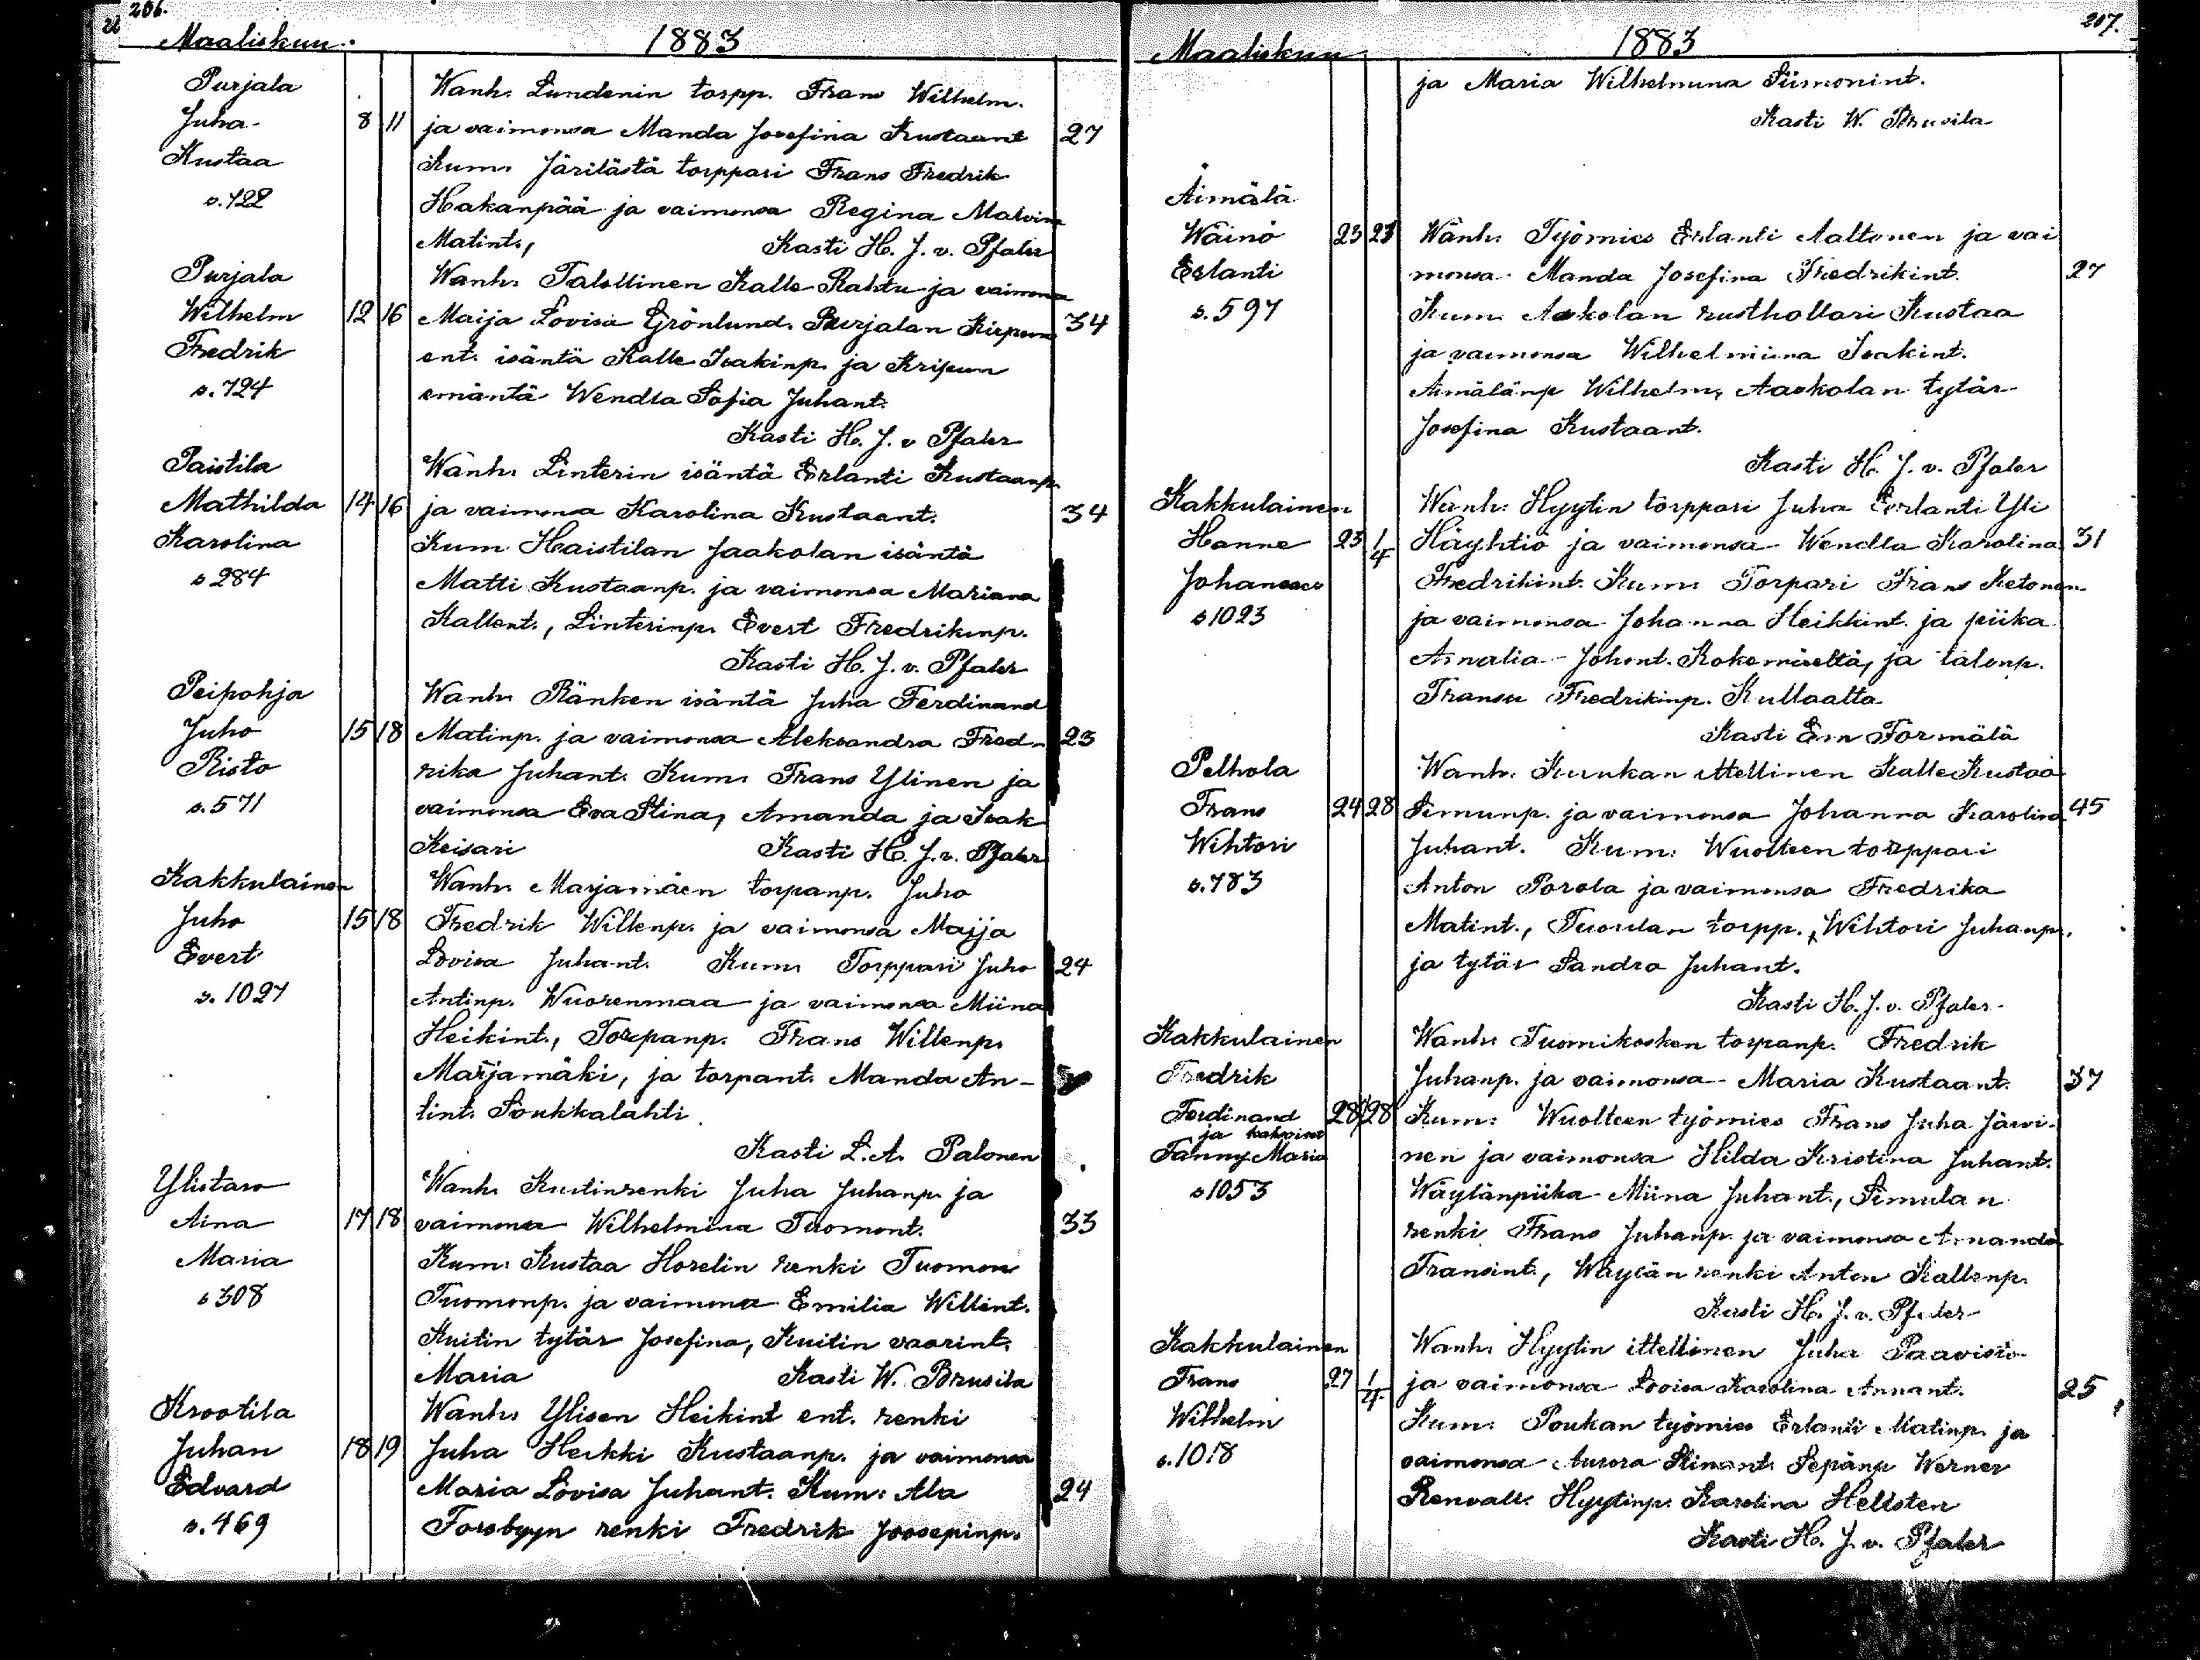 206.
Maaliskuu. 1883
Purjala
Juha
Kustaa
s. 722
8 11
Wanh. Lundenin torpp. Frans Wilhelm.
ja vaimonsa Manda Josefina Kustaant 27
Kum. Järilästä torppari Frans Fredrik
Hakanpää ja vaimonsa Regina Malvina
Matint., Kasti H. J. v. Pfaler
Purjala
Wilhelm
Fredrik
s. 724
12 16
Wanh. Talollinen Kalle Rahtu ja vaimonsa
Maija Lovisa Grönlund. Purjalan 34
ent. isäntä Kalle Isakinp. ja Kripun
emäntä Wendla Sofia Juhant.
Kasti H. J. v Pfaler
Paistila
Mathilda
Karolina
s 284
14 16
Wanh. Linterin isäntä Erlanti Kustaanp.
ja vaimonsa Karolina Kustaant. 34
Kum Haistilan Jaakolan isäntä
Matti Kustaanp. ja vaimonsa Mariana
Kallent., Linterinp. Evert Fredrikinp.
Kasti H. J. v. Pfaler
Peipohja
Juho
Risto
s. 571
15 18
Wanh. Ränken isäntä Juha Ferdinand
Matinp. ja vaimonsa Aleksandra Fred- 23
rika Juhant. Kum. Frans Ylinen ja
vaimonsa Eva Stina, Amanda ja Isak
Keisari Kasti H. J. v. Pfaler
Kakkulainen
Juho
Evert
s. 1027
15 18
Wanh. Marjamäen torpanp. Juho
Fredrik Willenp. ja vaimonsa Maija
Lovisa Juhant. Kum. Torppari Juho 24
Antinp. Wuorenmaa ja vaimonsa Miina
Heikint., Torpanp. Frans Willenp.
Marjamäki, ja torpant. Manda An-
tint. Soukkalahti
Kasti L. A. Palonen
Ylistaro
Aina
Maria
s 308
17 18
Wanh. Kuitinrenki Juha Juhanp. ja
vaimonsa Wilhelmina Tuomont. 33
Kum. Kustaa Horelin renki Tuomon
Tuomonp. ja vaimonsa Emilia Willent.
Kuitin tytär Josefina, Kuitin vaarint.
Maria Kasti W. Brusila
Krootila
Juhan
Edvard
s. 469
18 19
Wanh. Ylisen Heikint ent. renki
Juha Heikki Kustaanp. ja vaimonsa
Maria Lovisa Juhant. Kum: Ala 24
Forsbyyn renki Fredrik Joosepinp.
207.
Maaliskuu 1883
ja Maria Wilhelmina Siimonint.
Kasti W. Brusila
Äimälä
Wäinö
Erlanti
s. 597
23 23
Wanh. Työmies Erlanti Aaltonen ja vai
monsa Manda Josefina Fredrikint. 27
Kum. Aakolan rusthollari Kustaa
ja vaimonsa Wilhelmiina Isakint.
Äimälänp Wilhelm, Aaskolan tytär
Josefina Kustaant.
Kasti H. J. v. Pfaler
Kakkulainen
Hanne
Johannes
s 1023
23 1/4
Wanh. Hyytin torppari Juha Erlanti Yli
Häyhtiö ja vaimonsa Wendla Karolina 31
Fredrikint. Kum. Torpari Frans Ketonen
ja vaimonsa Johanna Heikkint. ja piika
Amalia Johint. Kokemäeltä, ja talonp.
Fransu Fredrikinp. Kullaalta
Kasti Em Formälä
Pelhola
Frans
Wihtori
s. 783
24 28
Wanh. Kuukan ittellinen Kalle Kustaa
Simunp. ja vaimonsa Johanna Karolina 45
Juhant. Kum: Wuolteen torppari
Anton Porola ja vaimonsa Fredrika
Matint., Tuorulan torpp. Wihtori Juhanp.
ja tytär Sandra Juhant.
Kasti H. J. v. Pfaler
Kakkulainen
Fredrik
Ferdinand
ja kaksoinen
Fanny Maria
s 1053
28 28
Wanh. Tuomikosken torpanp. Fredrik
Juhanp. ja vaimonsa Maria Kustaant. 37
Kum: Wuolteen työmies Frans Juha Järvi-
nen ja vaimonsa Hilda Kristina Juhant.
Wäylänpiika Miina Juhant., Simulan
renki Frans Juhanp. ja vaimonsa Amanda
Fransint., Wäylän renki Anton Kallenp.
Kasti H. J. v. Pfaler
Kakkulainen
Frans
Wilhelm
s. 1018
27 1/4
Wanh. Hyytin ittellinen Juha Paavisto
ja vaimonsa Lovisa Karolina Annant. 25
Kum: Poukan työmies Erlanti Matinp. ja
vaimonsa Aurora Stinant. Sepänp Werner
Renvall. Hyytinp. Karolina Hellsten
Kasti H. J. v. Pfaler